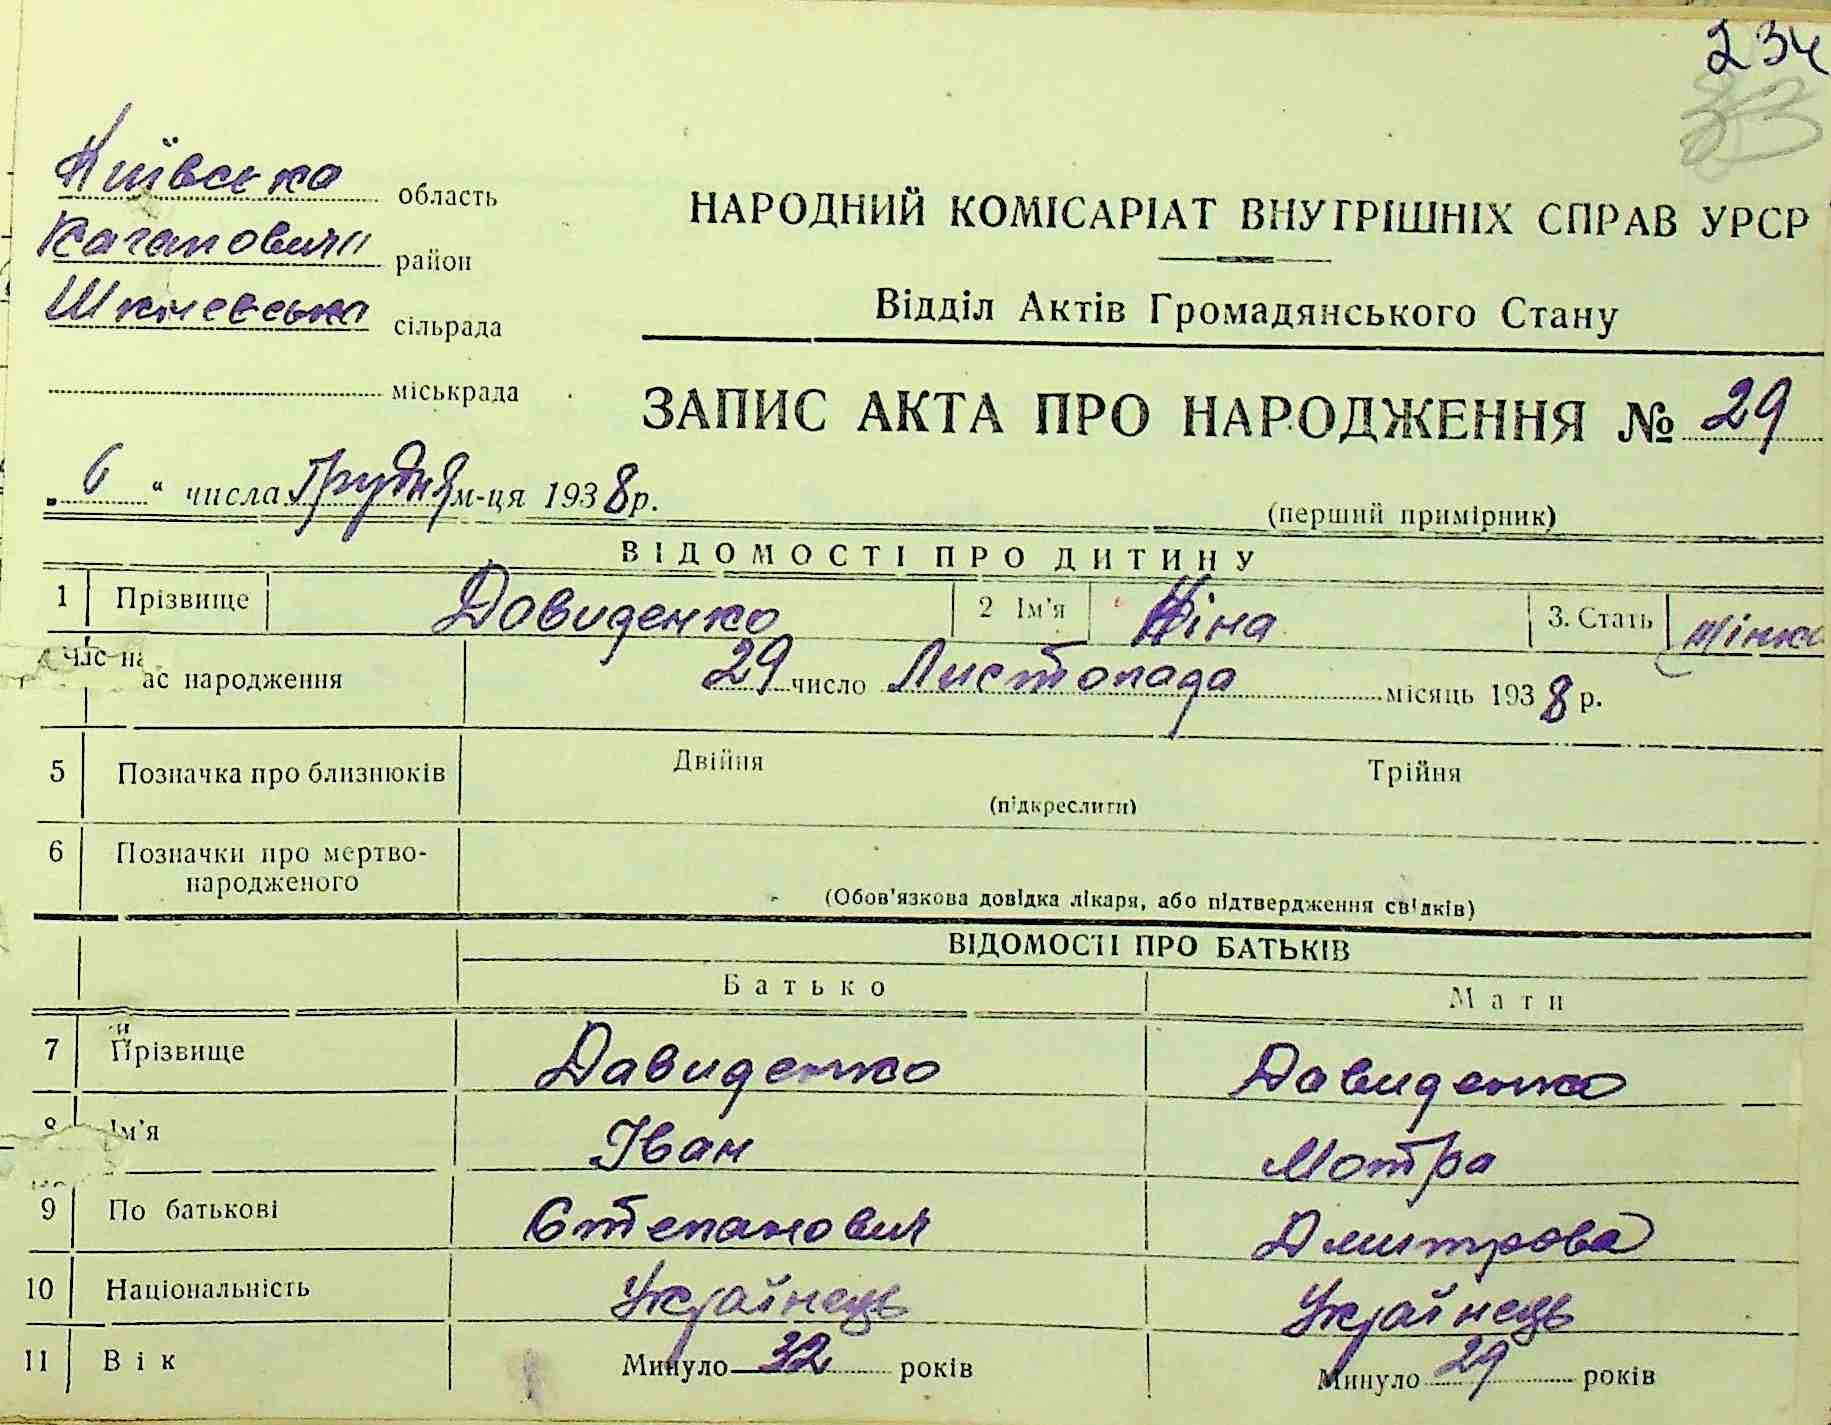 234
33
Київська область
Кагановичи район
Шкневська сільрада
міськрада
НАРОДНИЙ КОМІСАРІАТ ВНУТРІШНІХ СПРАВ УРСР
Відділ Актів Громадянського Стану
ЗАПИС АКТА ПРО НАРОДЖЕННЯ № 29
„6“ числа Грудня м-ця 1938 р.
(перший примірник)
ВІДОМОСТІ ПРО ДИТИНУ
1 Прізвище Довиденко 2 Ім'я Ніна 3. Стать жінка
ас народження 29 число Листопада місяць 1938 р.
5 Позначка про близнюків Двійня Трійня
(підкреслити)
6 Позначки про мертво-
народженого
(Обов'язкова довідка лікаря, або підтвердження свідків)
ВІДОМОСТІ ПРО БАТЬКІВ
Батько Мати
7 Прізвище Давиденко Давиденко
8 Ім'я Іван Мотра
9 По батькові Степанович Дмитрова
10 Національність Українець Українець
11 Вік Минуло 32 років Минуло 29 років